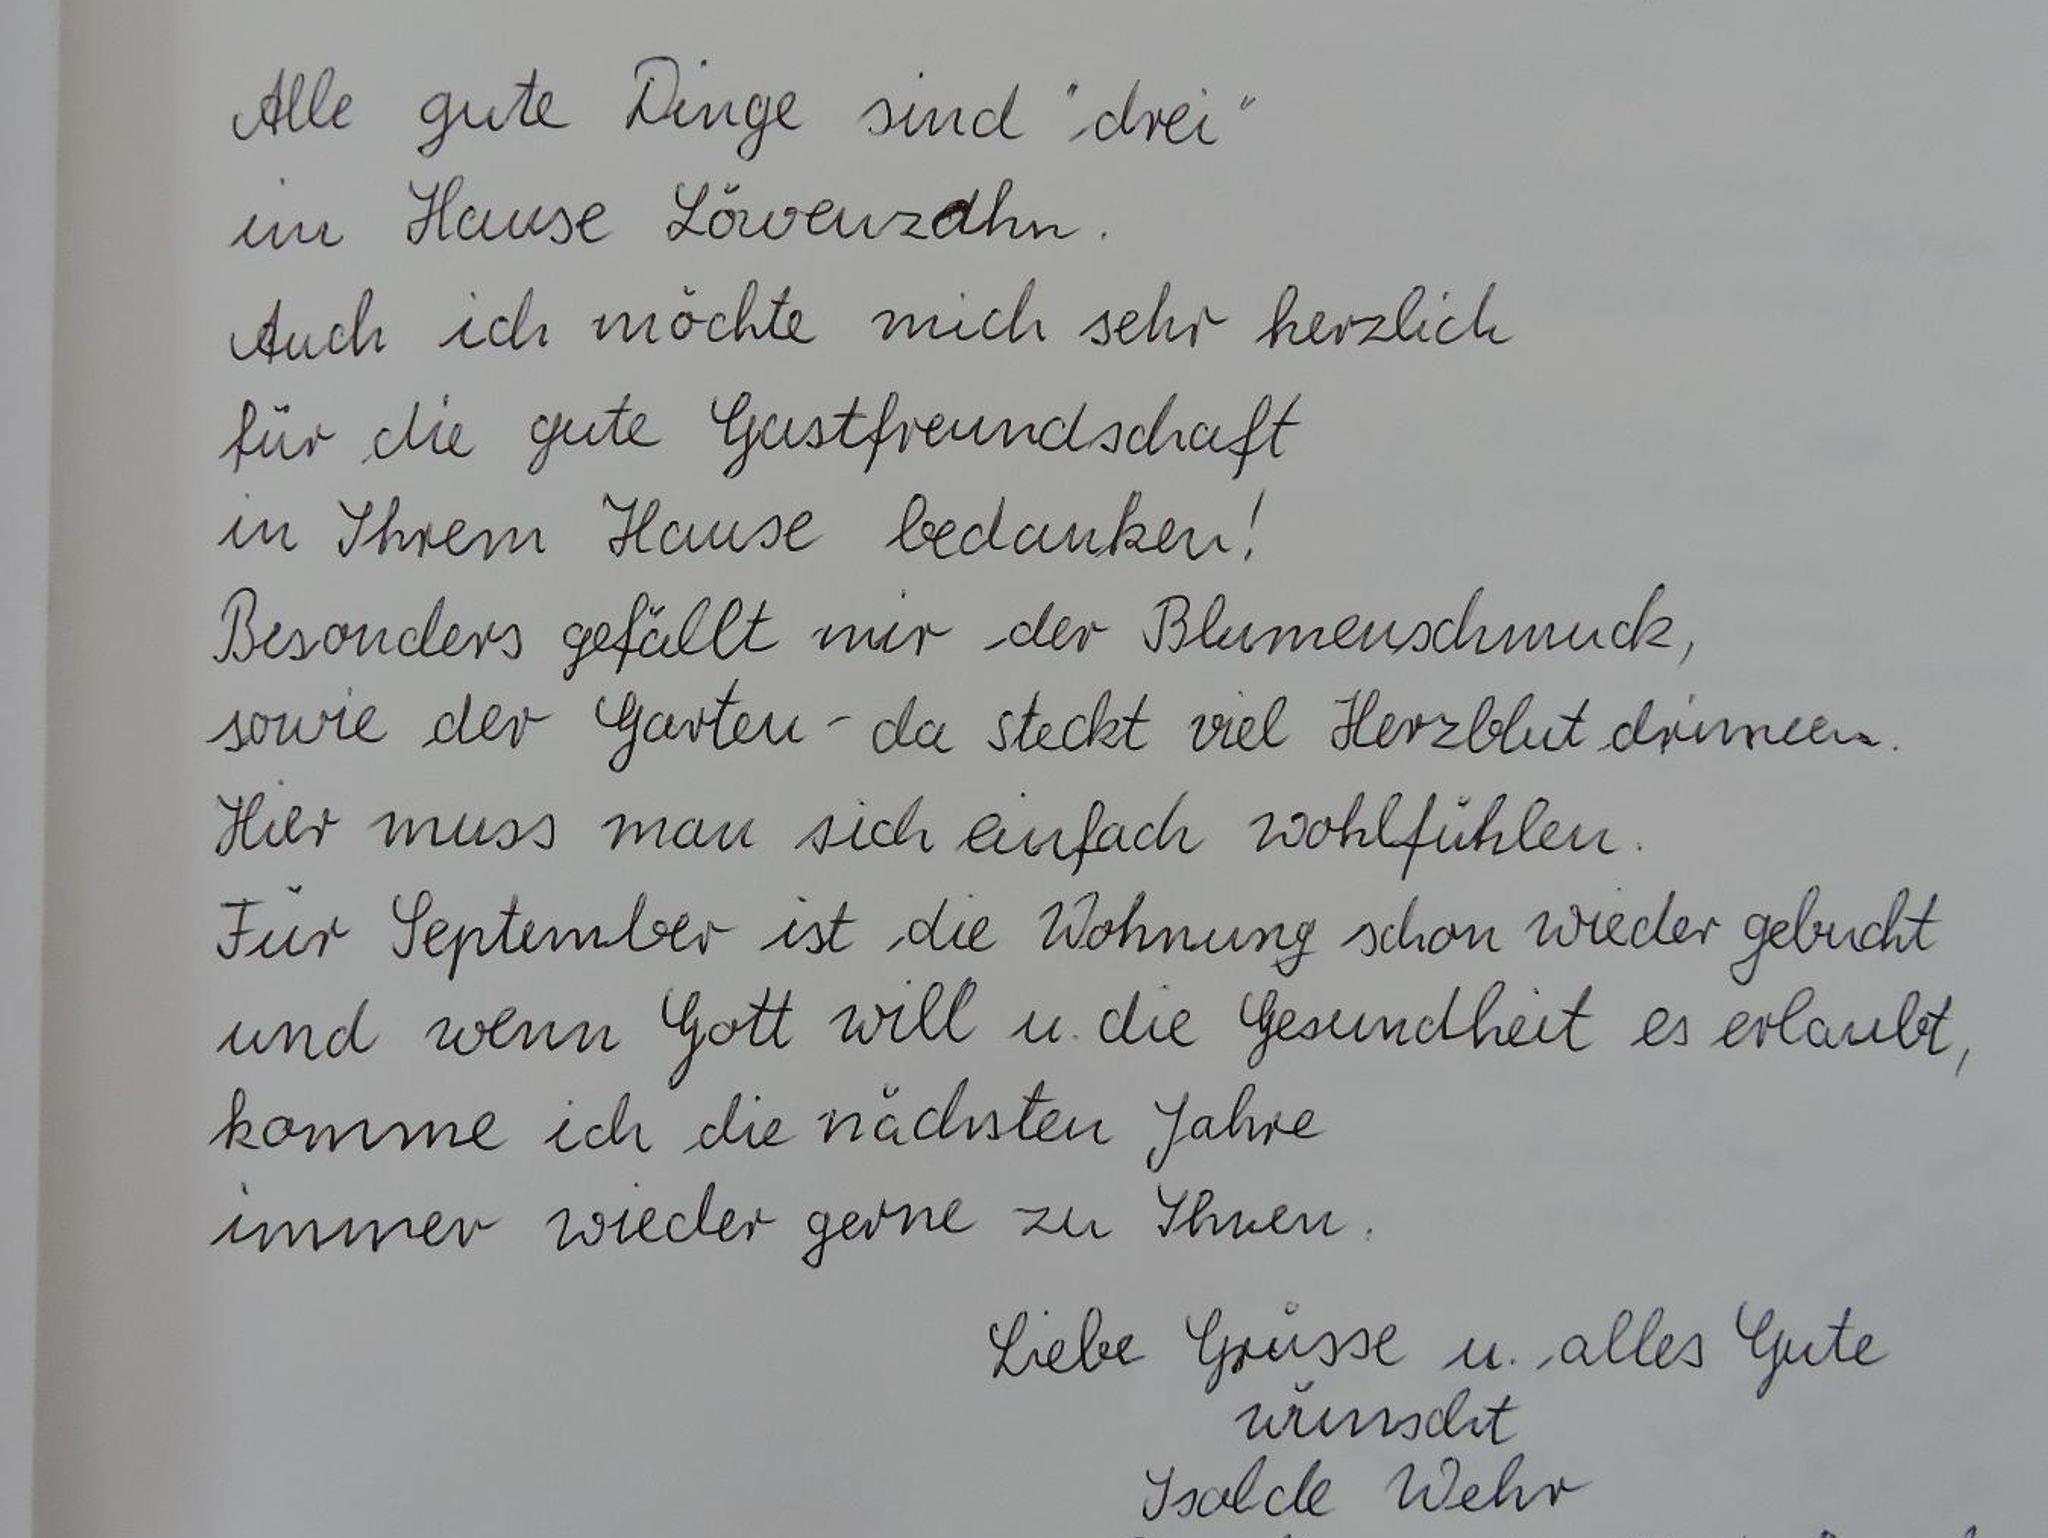 Alle gute Dinge sind "drei"
im Hause Löwenzahn.
Auch ich möchte mich sehr herzlich
für die gute Gastfreundschaft
in Ihrem Hause bedanken!
Besonders gefällt mir der Blumenschmuck,
sowie der Garten - da steckt viel Herzblut drinnen.
Hier muss man sich einfach wohlfühlen.
Für September ist die Wohnung schon wieder gebucht
und wenn Gott will u. die Gesundheit es erlaubt,
komme ich die nächsten Jahre
immer wieder gerne zu Ihnen.
Liebe Grüsse u. alles Gute
wünscht
Isolde Wehr